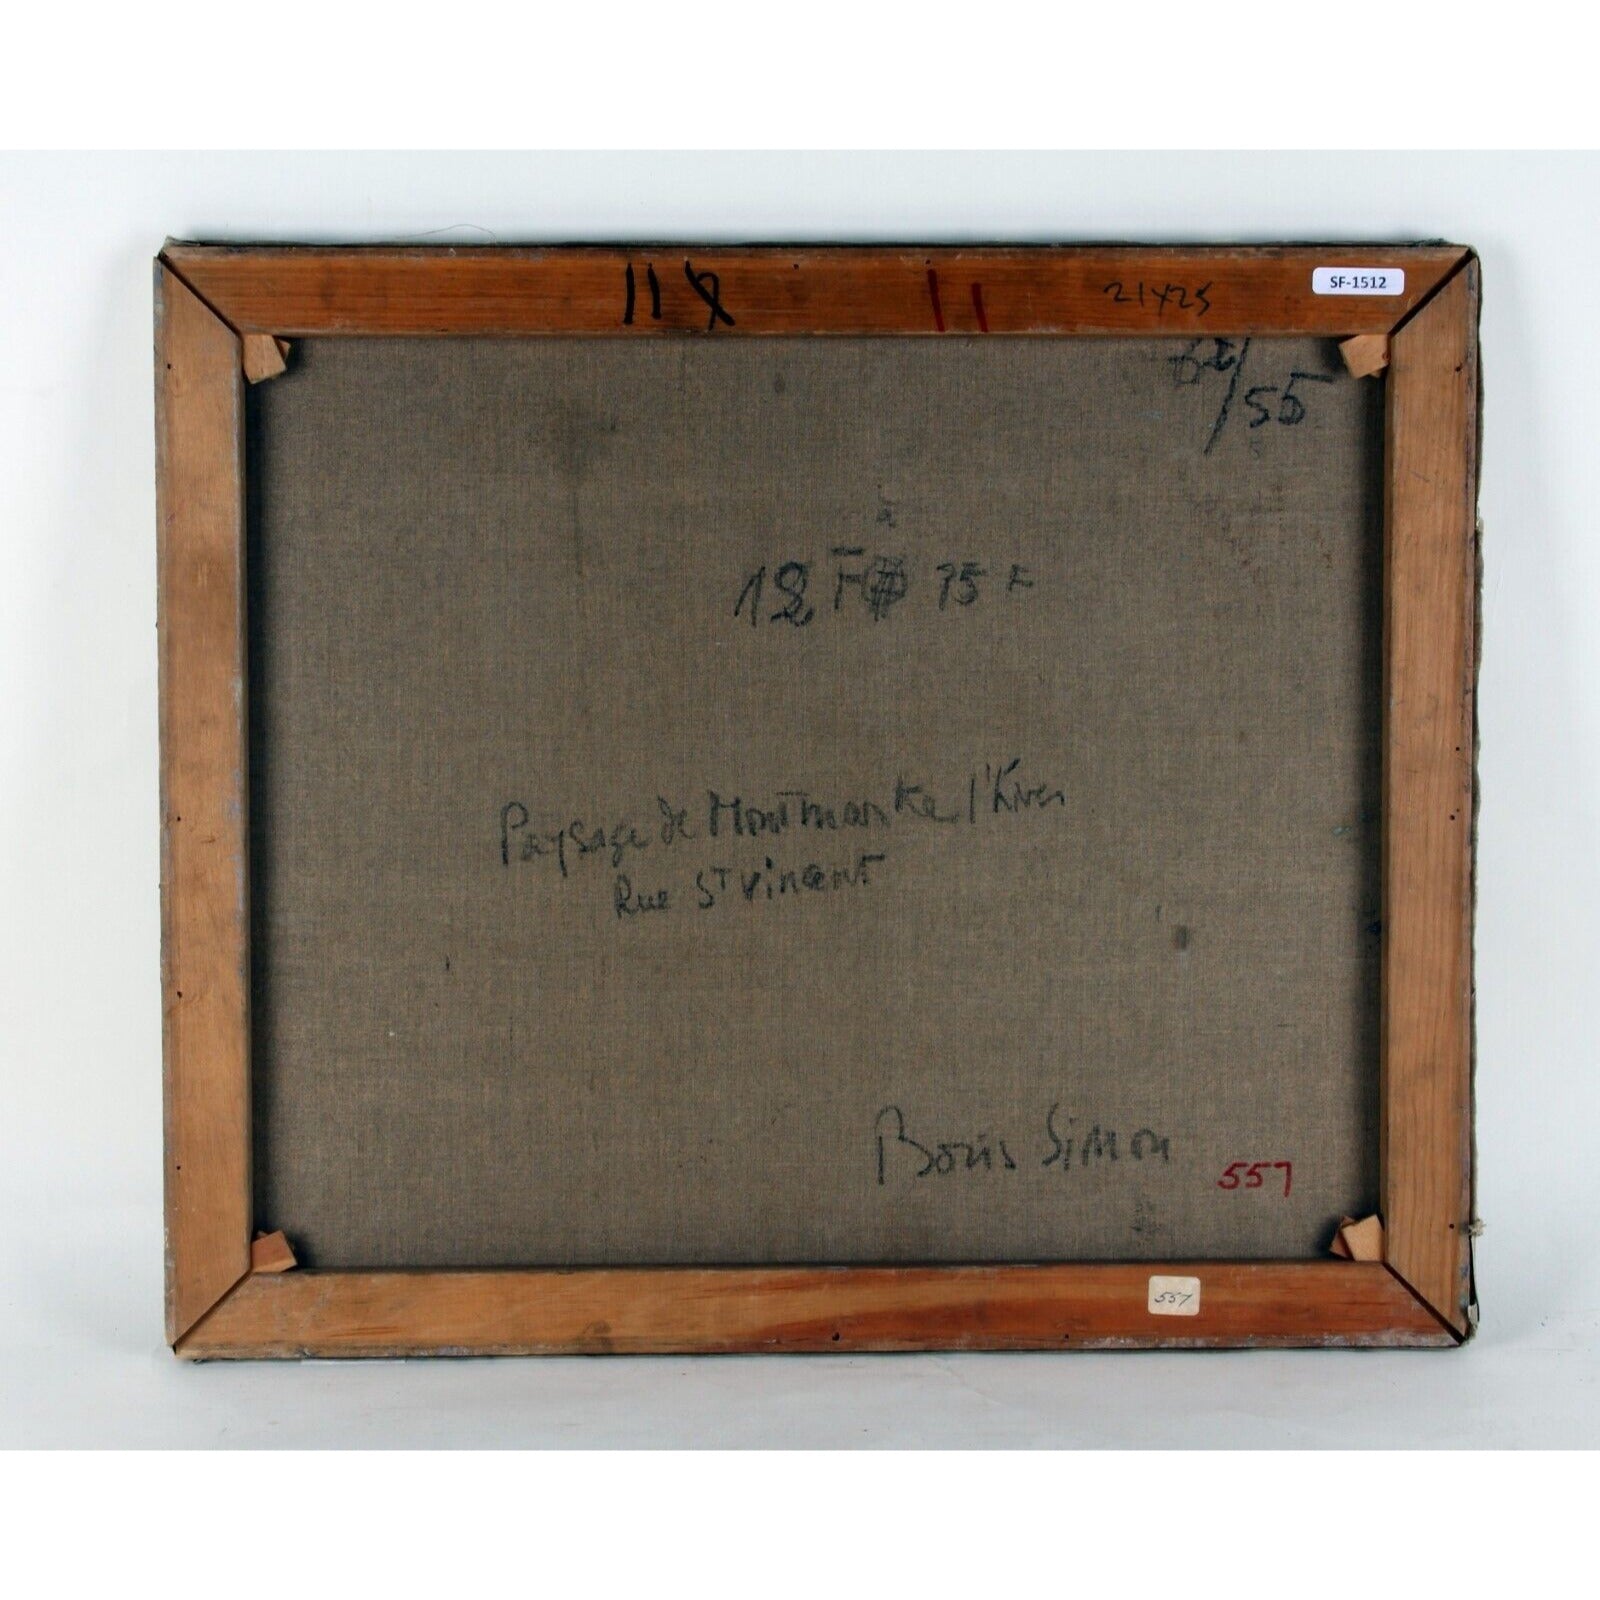 11 X 11 21x25 SF-1512
/55
à
12 F 15 F
Paysage de Montmartre l'hiver
Rue St Vincent
Boris Simon
557
557